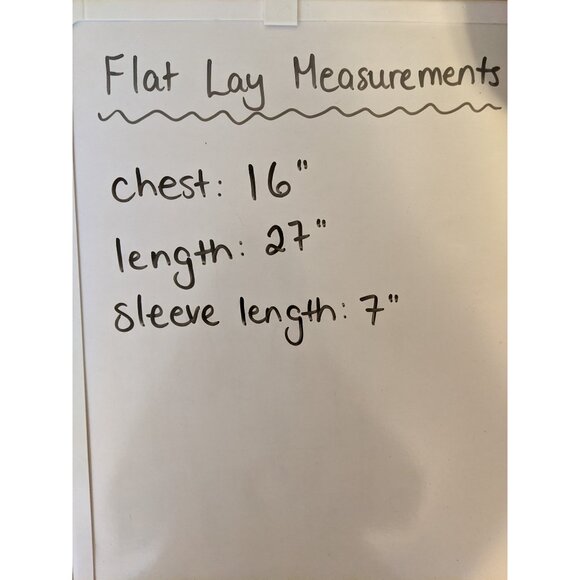 Flat Lay Measurements
chest: 16"
length: 27"
sleeve length: 7"